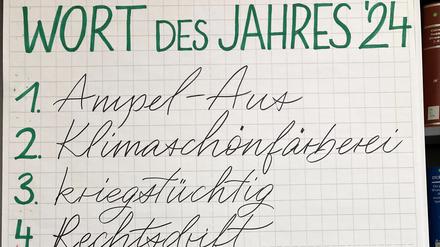 WORT DES JAHRES '24
1. Ampel-Aus
2. Klimaschönfärberei
3. kriegstüchtig
4 Rechtsdrift